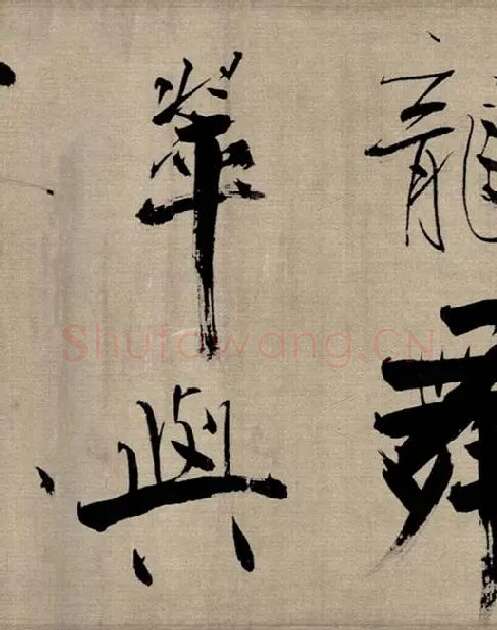 龍舞
華與
Shufawang.CN